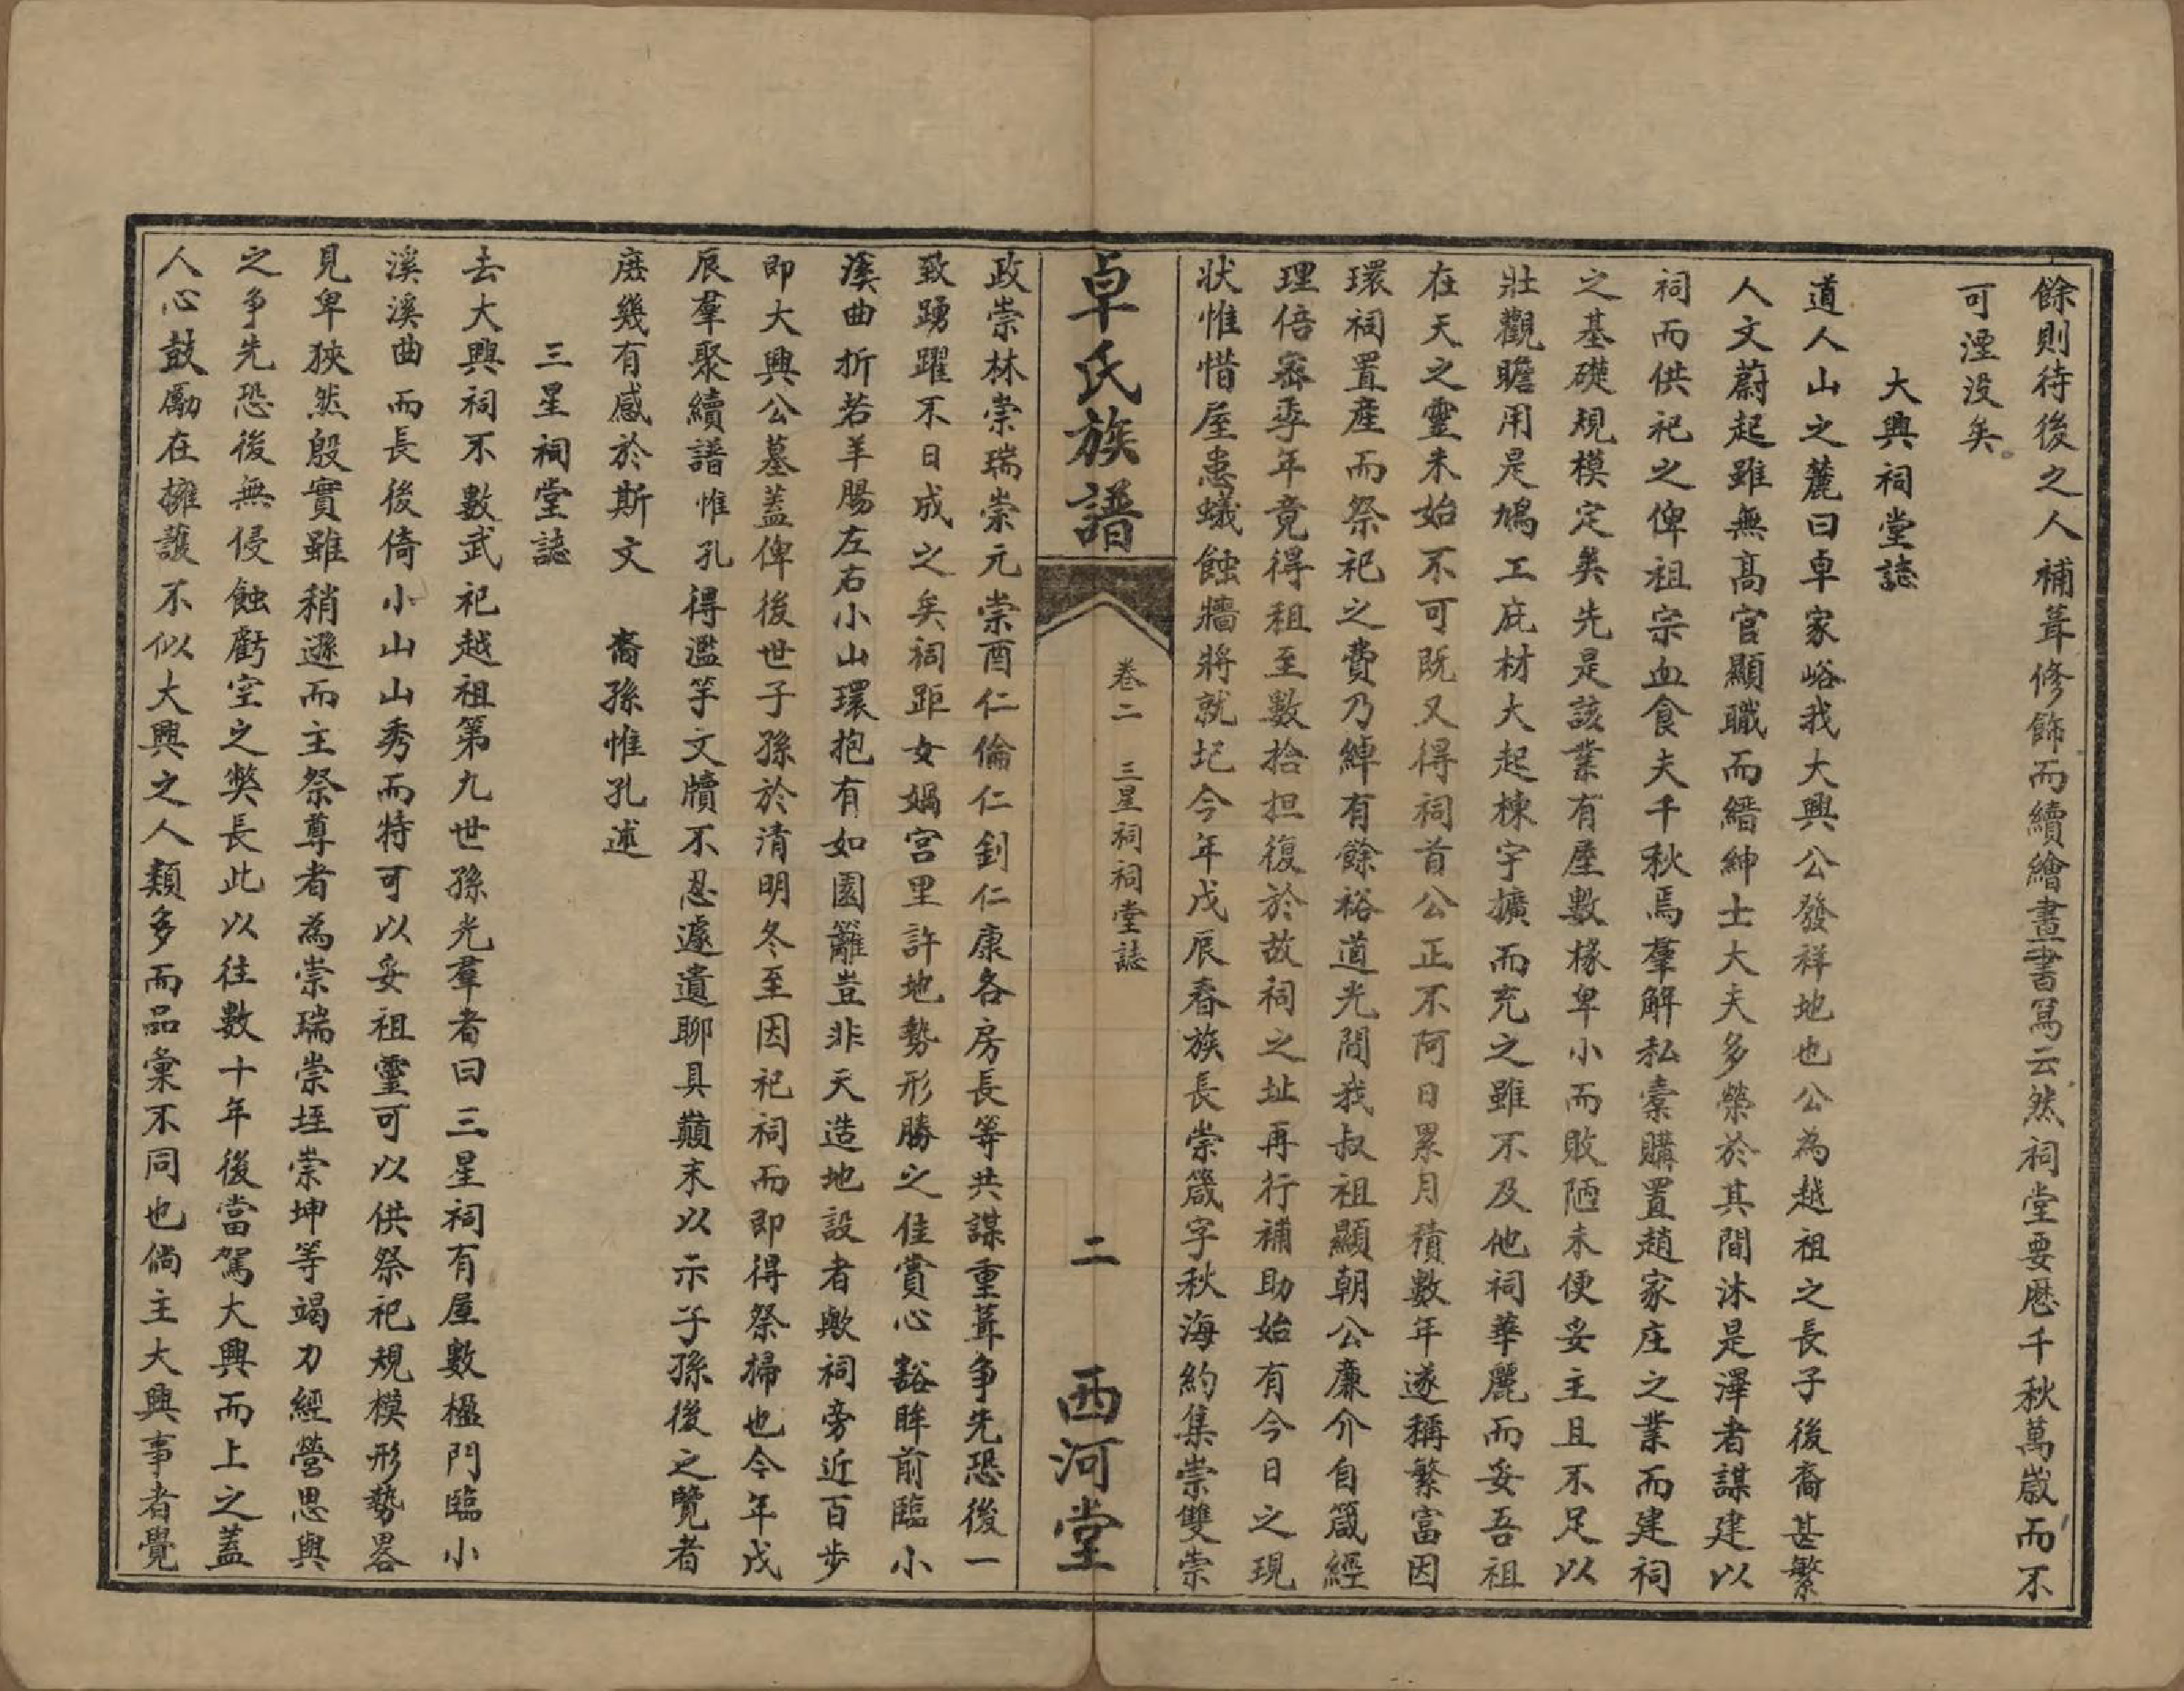 餘則待後之人補葺修飾而續繪畫書寫云然祠堂要歷千秋萬歲而不
可湮没矣
大興祠堂誌
道人山之麓曰卓家峪我大興公發祥地也公為越祖之長子後裔甚繁
人文蔚起雖無高官顯職而縉紳士大夫多榮於其間沐是澤者謀建以
祠而供祀之俾祖宗血食夫千秋焉羣解私橐購置趙家庄之業而建祠
之基礎規模定矣先是該業有屋數椽卑小而敗陋未便妥主且不足以
壯觀瞻用是鳩工庇材大起棟宇擴而充之雖不及他祠華麗而妥吾祖
在天之靈未始不可既又得祠首公正不阿日累月積數年遂稱繁富因
環祠置產而祭祀之費乃綽有餘裕道光間我叔祖顯朝公廉介自箴經
理倍密季年竟得租至數拾担復於故祠之址再行補助始有今日之現
狀惟惜屋患蟻蝕牆將就圮今年戊辰春族長崇箴字秋海約集崇雙崇
卓氏族譜
卷二 三星祠祠堂誌
二
西河堂
政崇林崇瑞崇元崇酉仁倫仁釗仁康各房長等共謀重葺争先恐後一
致踴躍不日成之矣祠距女媧宫里許地勢形勝之佳賞心豁眸前臨小
溪曲折若羊腸左右小山環抱有如園籬豈非天造地設者歟祠旁近百步
即大興公墓蓋俾後世子孫於清明冬至因祀祠而即得祭掃也今年戊
辰羣聚續譜惟孔得濫竽文牘不忍遽遺聊具巔末以示子孫後之覽者
庶幾有感於斯文 裔孫惟孔述
三星祠堂誌
去大興祠不數武祀越祖第九世孫光羣者曰三星祠有屋數楹門臨小
溪溪曲而長後倚小山山秀而特可以妥祖靈可以供祭祀規模形勢畧
見卑狹然殷實雖稍遜而主祭尊者為崇瑞崇垤崇坤等竭力經營思與
之争先恐後無侵蝕虧空之獘長此以往數十年後當駕大興而上之蓋
人心鼓勵在擁護不似大興之人類多而品彙不同也倘主大興事者覺